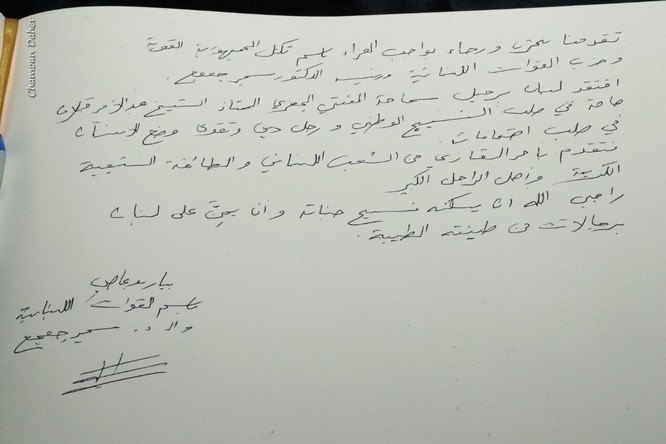 تقدمنا بحزن ورجاء بواجب العزاء باسم تكتل الجمهورية القوية
وحزب القوات اللبنانية ورئيسه الدكتور سمير جعجع.
افتقد لبنان برحيل سماحة المفتي الجعفري الممتاز الشيخ عبد الأمير قبلان
في صلب النسيج الوطني ورجل دين وتقوى وضع الإنسان
في صلب اهتماماته.
نتقدم بأحر التعازي من الشعب اللبناني والطائفة الشيعية
الكريمة وأهل الراحل الكبير
راجين الله أن يسكنه فسيح جناته وأن يمن على لبنان
برجالات من طينته الطيبة.
بيار بو عاصي
باسم القوات اللبنانية
والد. سمير جعجع
Chamoun Daher